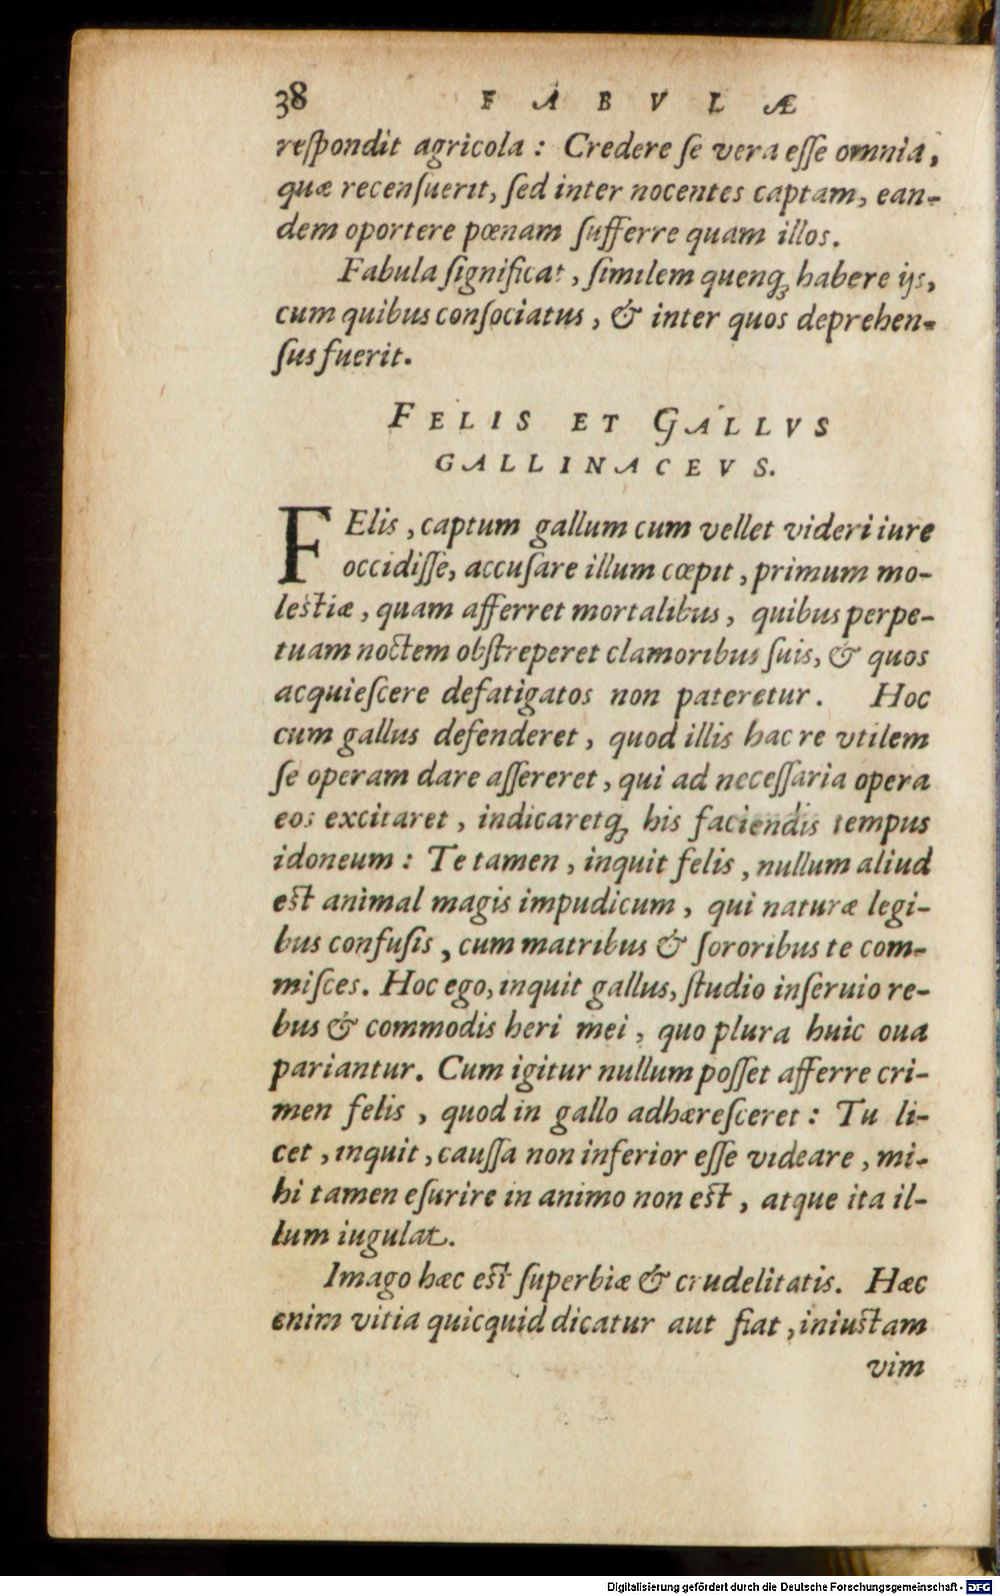 38 FABVLÆ
reſpondit agricola : Credere ſe vera eſſe omnia,
quæ recenſuerit, ſed inter nocentes captam, ean-
dem oportere pœnam ſufferre quam illos.
Fabula ſignificat, ſimilem quenq; habere ijs,
cum quibus conſociatus, & inter quos deprehen-
ſus fuerit.
FELIS ET GALLVS
GALLINACEVS.
FElis, captum gallum cum vellet videri iure
occidiſſe, accuſare illum cœpit, primum mo-
leſtiæ, quam afferret mortalibus, quibus perpe-
tuam noctem obſtreperet clamoribus ſuis, & quos
acquieſcere defatigatos non pateretur. Hoc
cum gallus defenderet, quod illis hac re vtilem
ſe operam dare aſſereret, qui ad neceſſaria opera
eos excitaret, indicaretq; his faciendis tempus
idoneum : Te tamen, inquit felis, nullum aliud
eſt animal magis impudicum, qui naturæ legi-
bus confuſis, cum matribus & ſororibus te com-
miſces. Hoc ego, inquit gallus, ſtudio inſeruio re-
bus & commodis heri mei, quo plura huic oua
pariantur. Cum igitur nullum poſſet afferre cri-
men felis, quod in gallo adhæreſceret : Tu li-
cet, inquit, cauſſa non inferior eſſe videare, mi-
hi tamen eſurire in animo non eſt, atque ita il-
lum iugulat.
Imago hæc eſt ſuperbiæ & crudelitatis. Hæc
enim vitia quicquid dicatur aut fiat, iniuſtam
vim
Digitalisierung gefördert durch die Deutsche Forschungsgemeinschaft - DFG